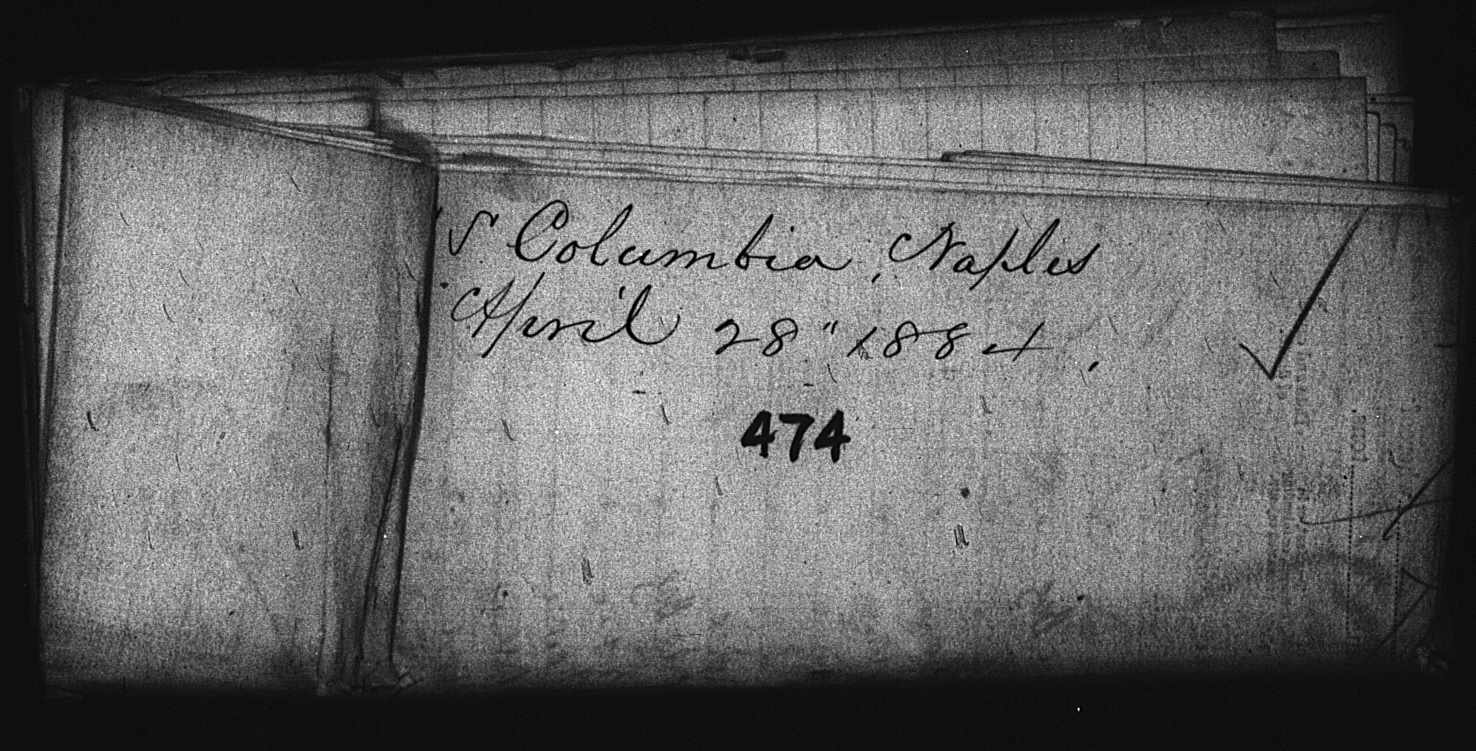 S. Columbia, Naples
April 28" 1884.
474